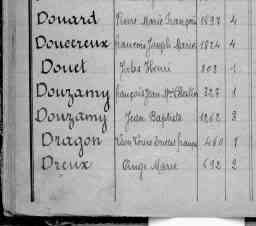 Douard Pierre Marie François 1897 4
Doucereux François Joseph Marie 1824 4
Douet Jules Henri 803 1
Douzamy François Jean Mie 327 1
Douzamy Jean Baptiste 1262 3
Dragon Léon Louis français 460 1
Dreux Ange Marie 692 2